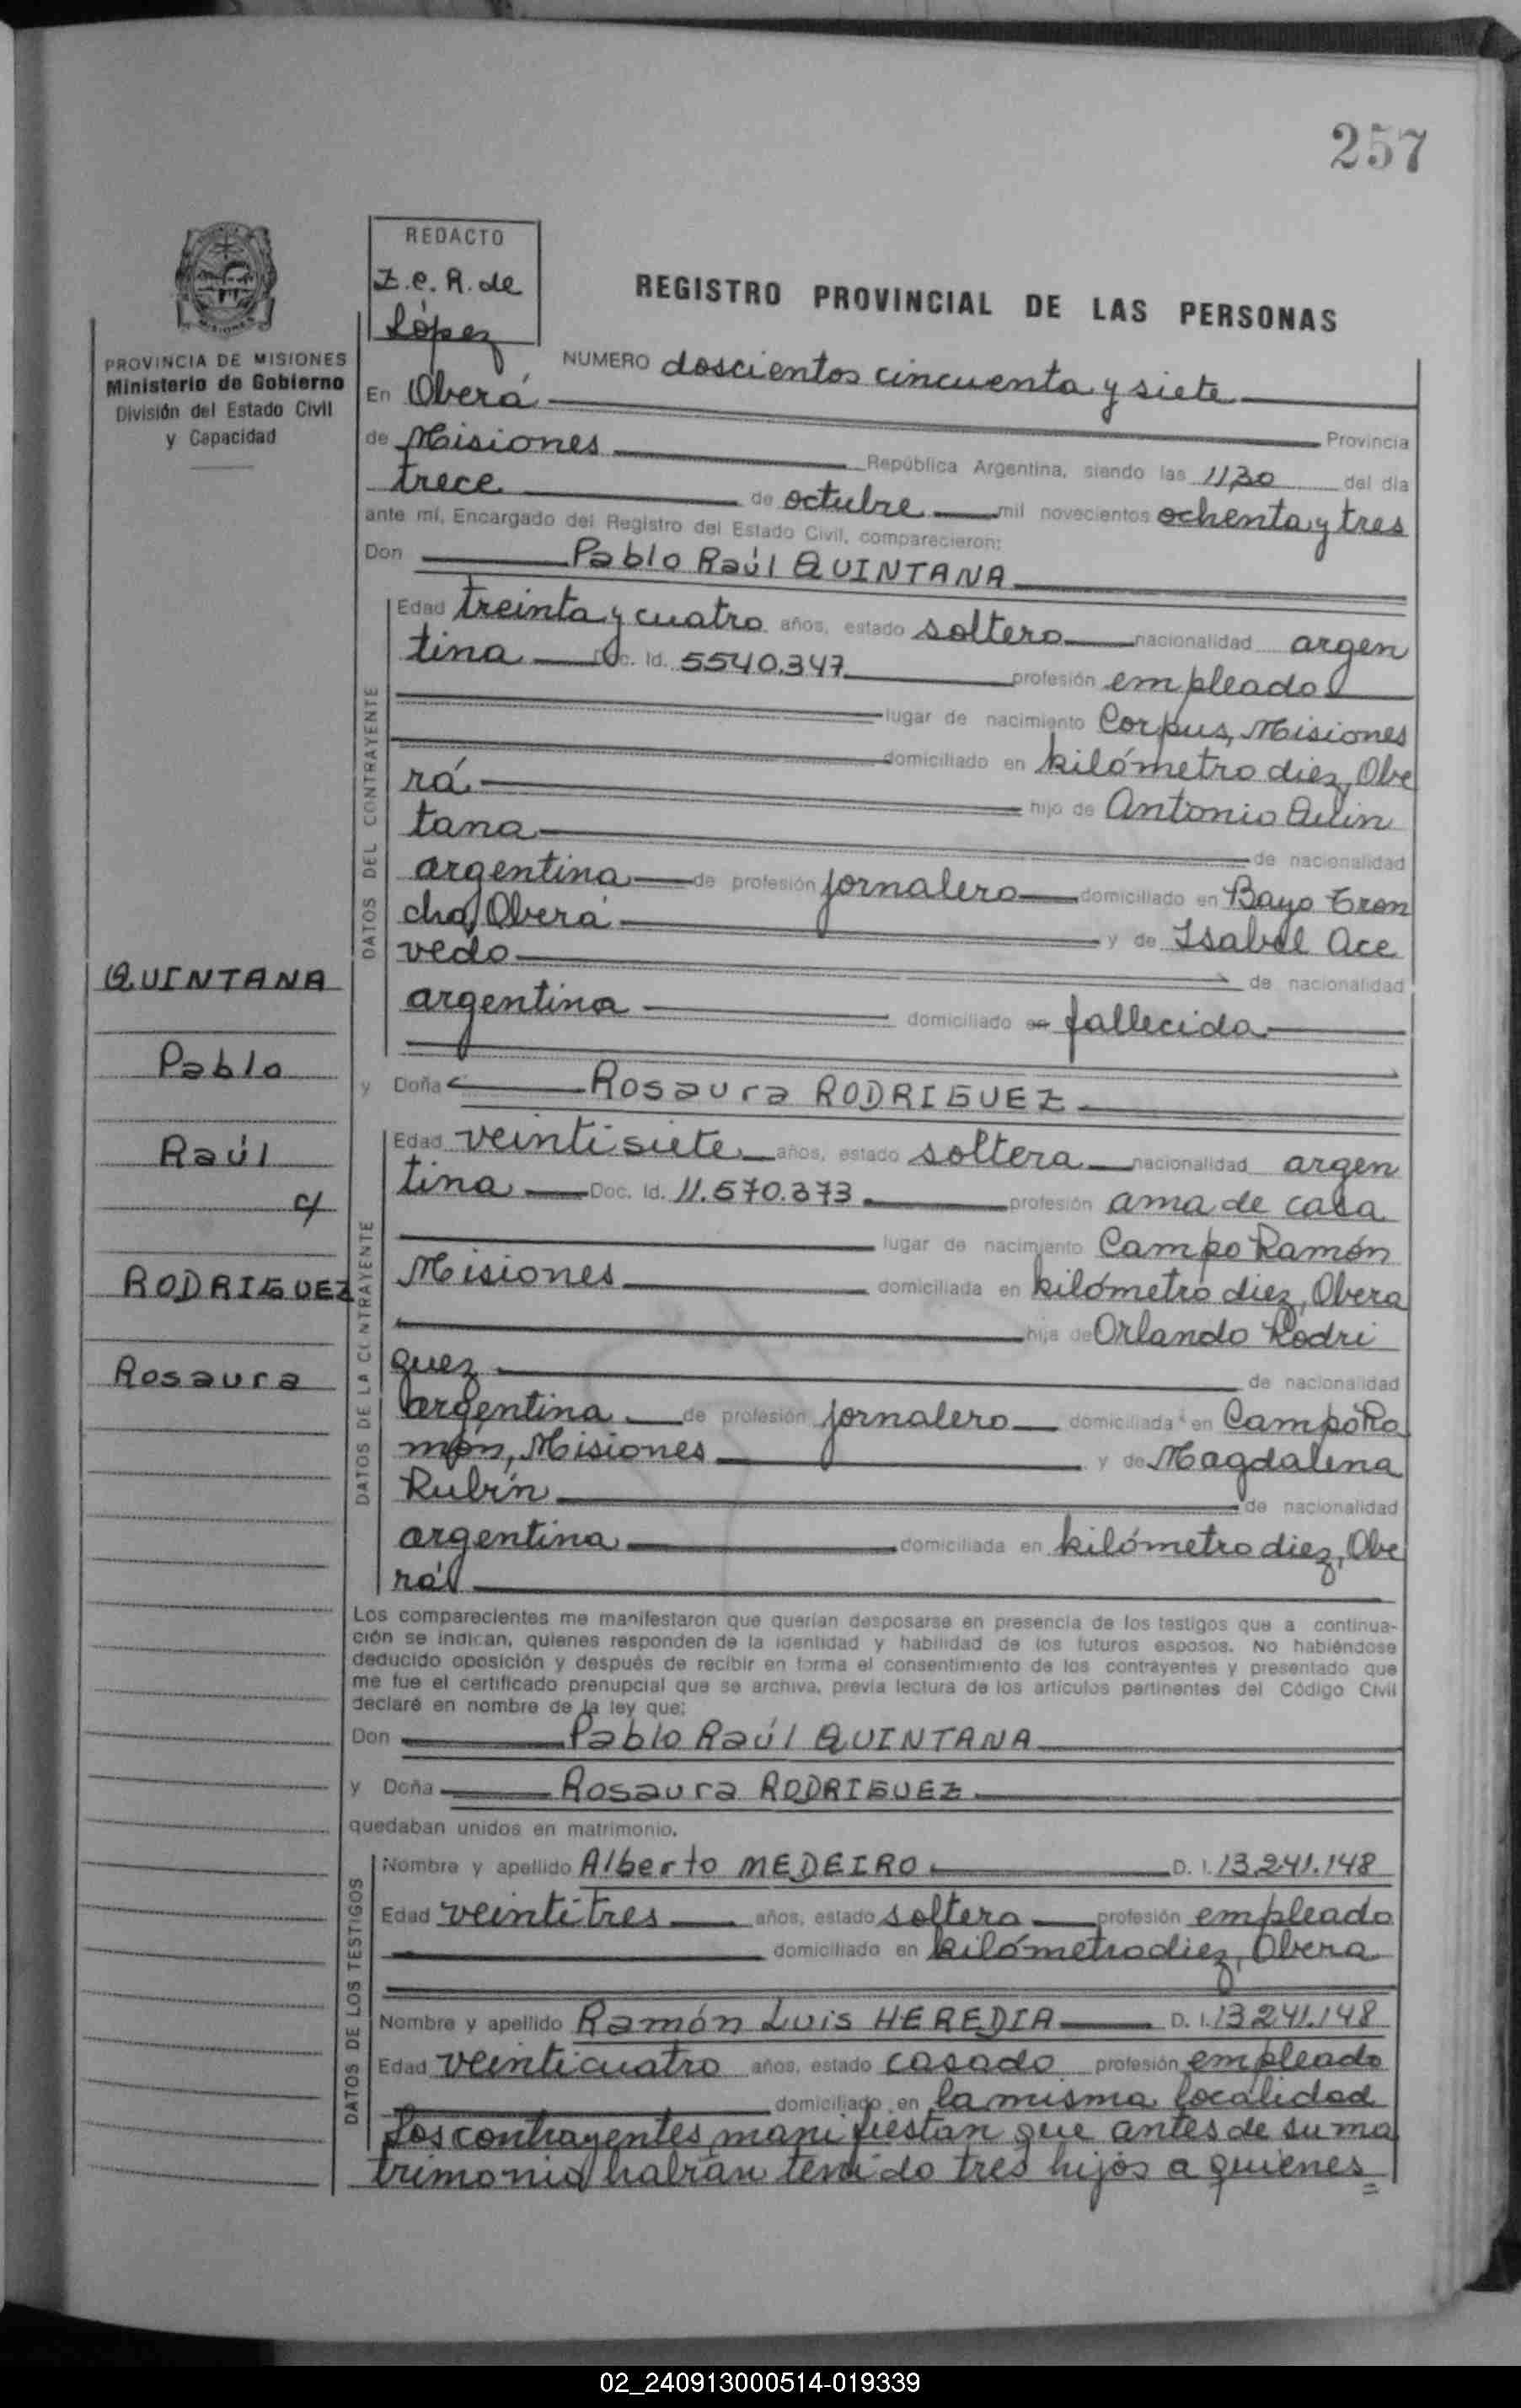 257
REDACTO
Z.C.R. de
López
REGISTRO PROVINCIAL DE LAS PERSONAS
PROVINCIA DE MISIONES
Ministerio de Gobierno
División del Estado Civil
y Capacidad
NUMERO doscientos cincuenta y siete
En Oberá Provincia
de Misiones República Argentina, siendo las 11,30 del día
trece de octubre mil novecientos ochenta y tres
ante mí, Encargado del Registro del Estado Civil, comparecieron:
Don Pablo Raúl QUINTANA
DATOS DEL CONTRAYENTE
Edad treinta y cuatro años, estado soltero nacionalidad argen
tina Doc. Id. 5540.347 profesión empleado
lugar de nacimiento Corpus, Misiones
domiciliado en kilómetro diez, Obe
rá hijo de Antonio Quin
tana de nacionalidad
argentina de profesión jornalero domiciliado en Bayo Tron
cho, Oberá y de Isabel Ace
vedo de nacionalidad
argentina domiciliado en fallecida
QUINTANA
Pablo
Raúl
c/
RODRIGUEZ
Rosaura
y Doña Rosaura RODRIGUEZ
DATOS DE LA CONTRAYENTE
Edad veintisiete años, estado soltera nacionalidad argen
tina Doc. Id. 11.570.373 profesión ama de casa
lugar de nacimiento Campo Ramón
Misiones domiciliada en kilómetro diez, Obera
hija de Orlando Rodri
guez de nacionalidad
argentina de profesión jornalero domiciliada en Campo Ra
món, Misiones y de Magdalena
Rubín de nacionalidad
argentina domiciliada en kilómetro diez, Obe
rá
Los comparecientes me manifestaron que querían desposarse en presencia de los testigos que a continua-
ción se indican, quienes responden de la identidad y habilidad de los futuros esposos. No habiéndose
deducido oposición y después de recibir en forma el consentimiento de los contrayentes y presentado que
me fue el certificado prenupcial que se archiva, previa lectura de los artículos pertinentes del Código Civil
declaré en nombre de la ley que:
Don Pablo Raúl QUINTANA
y Doña Rosaura RODRIGUEZ
quedaban unidos en matrimonio.
DATOS DE LOS TESTIGOS
Nombre y apellido Alberto MEDEIRO D. I. 13.241.148
Edad veintitres años, estado soltero profesión empleado
domiciliado en kilómetro diez, Obera
Nombre y apellido Ramón Luis HEREDIA D. I. 13.241.148
Edad veinticuatro años, estado casado profesión empleado
domiciliado en la misma localidad
Los contrayentes manifiestan que antes de su ma
trimonio habían tenido tres hijos a quienes
02_240913000514-019339